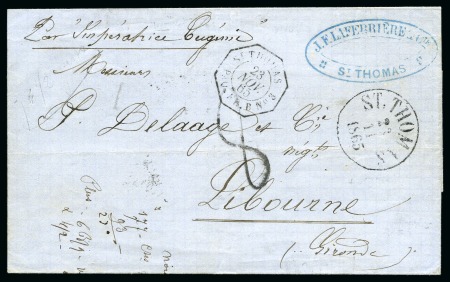 Par "Impératrice Eugénie"
J. F. LAFERRIÈRE
ST THOMAS
ST THOMAS
23
NOV
65
PAQ. FR. B No 3
Messieurs
P Delaage et Cie
négts
ST. THOMAS
23
11
1865
8
Libourne
(Gironde)